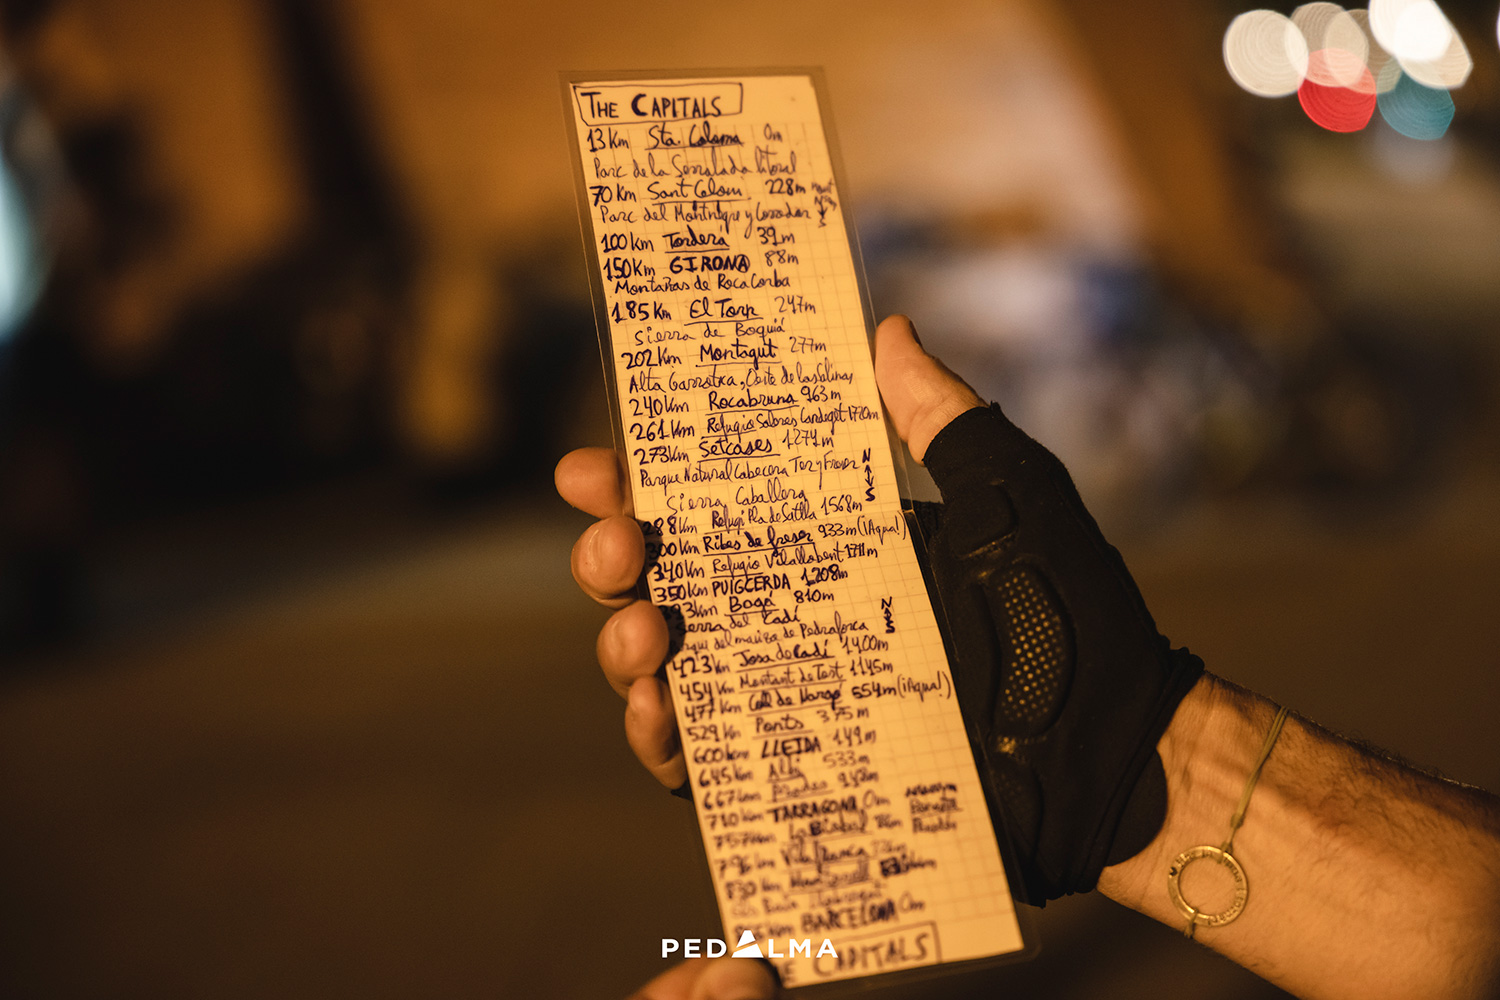 THE CAPITALS
13 Km Sta. Coloma 0m
Parc de la Serralada litoral
70 Km Sant Celoni 228m
Parc del Montnegre y Corredor N S
100 Km Tordera 39m
150 Km GIRONA 88m
Montañas de Roca Corba
185 Km El Torn 247m
Sierra de Boquiá
202 Km Montagut 277m
Alta Garrotxa,
240 Km Rocabruna 963m
261 Km Refugio 1720m
273 Km Setcases 1274m
Parque Natural Cabecera Ter y Freser N S
Sierra Caballera
288 Km Refugi Pla de 1568m
300 Km Ribes de freser 933m (¡Agua!)
340 Km Refugio Vilallobent 1711m
350 Km PUIGCERDA 1.208m
93 Km Bagá 810m
ierra del Cadí N S
de Pedraforca
423 Km Josa de Cadí 1400m
454 Km Montant de Tost 1145m
477 Km Coll de Nargó 554m (¡Agua!)
529 Km Ponts 375m
600 km LLEIDA 149m
645 Km Albi 533m
667 km
710 km TARRAGONA 0m
757 km La Bisbal
796 km Vilafranca
830 km
Km BARCELONA 0m
E CAPITALS
PEDALMA